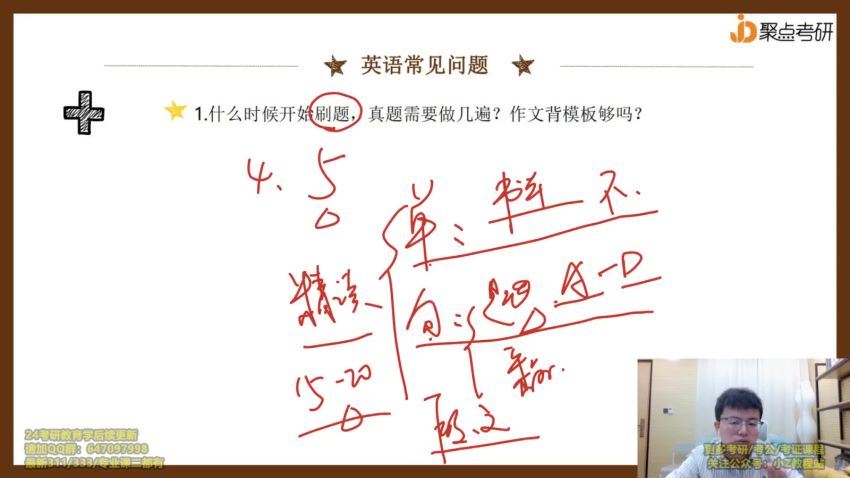 聚点考研
英语常见问题
1.什么时候开始刷题，真题需要做几遍？作文背模板够吗？
4、5
单：
不.
精读
句：
题
A-D
15-20
段.文
24考研教育学后续更新
请加QQ群：647097998
最新311/333/专业课二都有
更多考研/考公/考证课程
关注公众号：小Z教程站